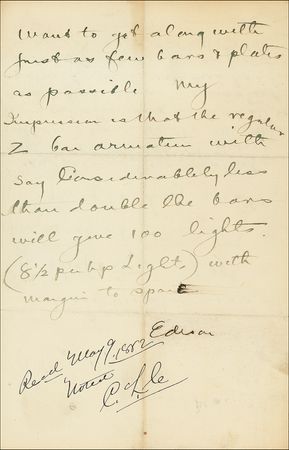 want to get along with
just as few bars & plates
as possible My
Impression is that the regular
Z bar armature with
say Considerablely less
than double the bars
will give 100 lights.
(8½ per hp Lights) with
margin to spare
Edison
Read May 9, 1882
Noted